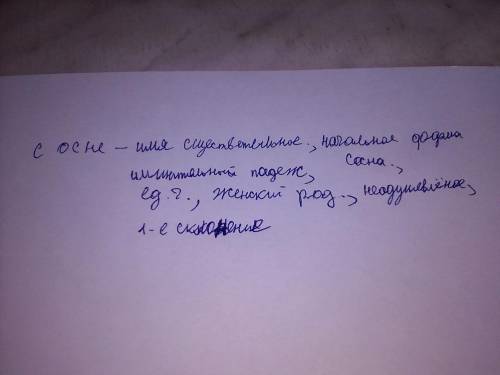 сосне – имя существительное., начальная форма
именительный падеж, сосна.,
ед.ч., женский род., неодушевлёное,
1-е склонение